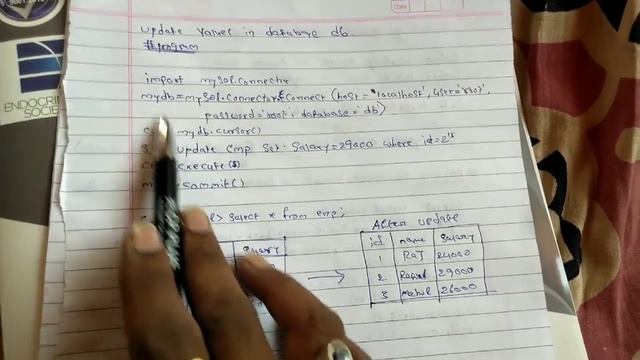 ENDOCRINE
SOCIETY
update values in database db.
#program
import mysql.connector
mydb=mysql.connector.connect (host='localhost', user='root',
password='root', database='db')
mydb.cursor()
update emp set salary=29000 where id=2"
execute(s)
commit()
> select * from emp;
After update
salary
id name salary
1 Raj 24000
2 29000
3 26000